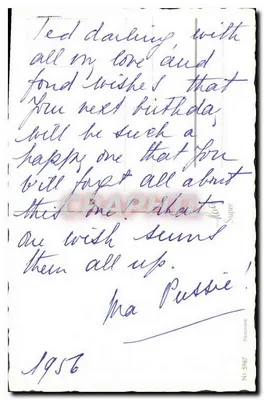 Ted darling, with
all my love and
fond wishes that
your next birthday
will be such a
happy one that you
will forget all about
this one. That
one wish sums
them all up.
Ma Pussie!
1956